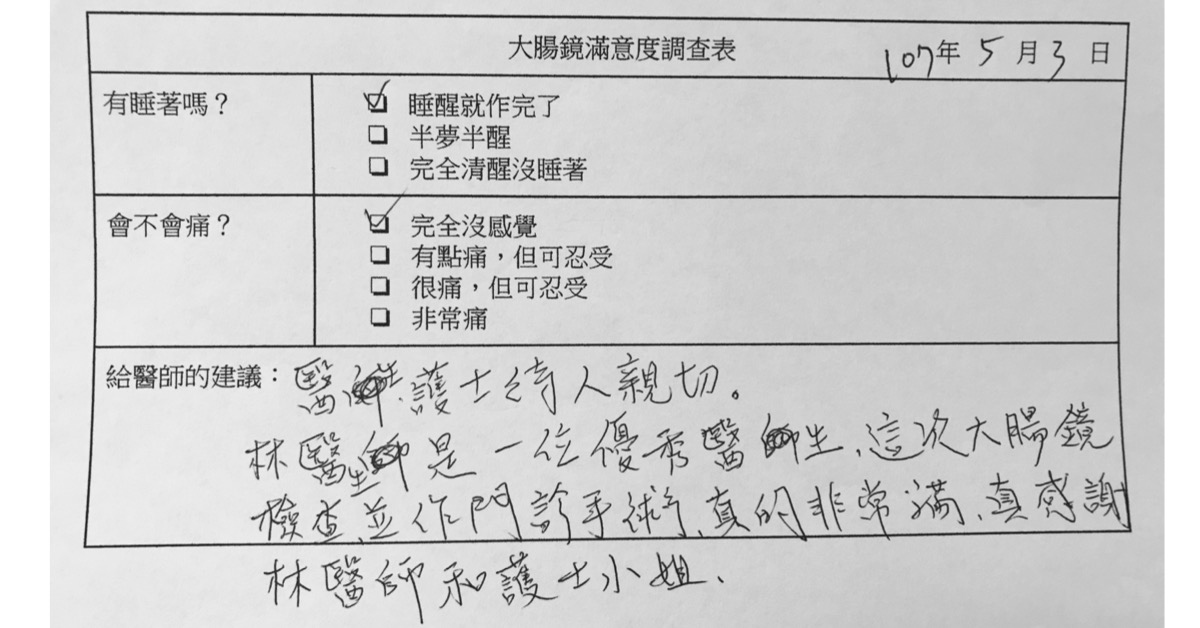 大腸鏡滿意度調查表 107年5月3日
有睡著嗎？
☑ 睡醒就作完了
❏ 半夢半醒
❏ 完全清醒沒睡著
會不會痛？
☑ 完全沒感覺
❏ 有點痛，但可忍受
❏ 很痛，但可忍受
❏ 非常痛
給醫師的建議：醫生、護士待人親切。
林醫師是一位優秀醫生、這次大腸鏡
檢查並作門診手術、真的非常滿、真感謝
林醫師和護士小姐、